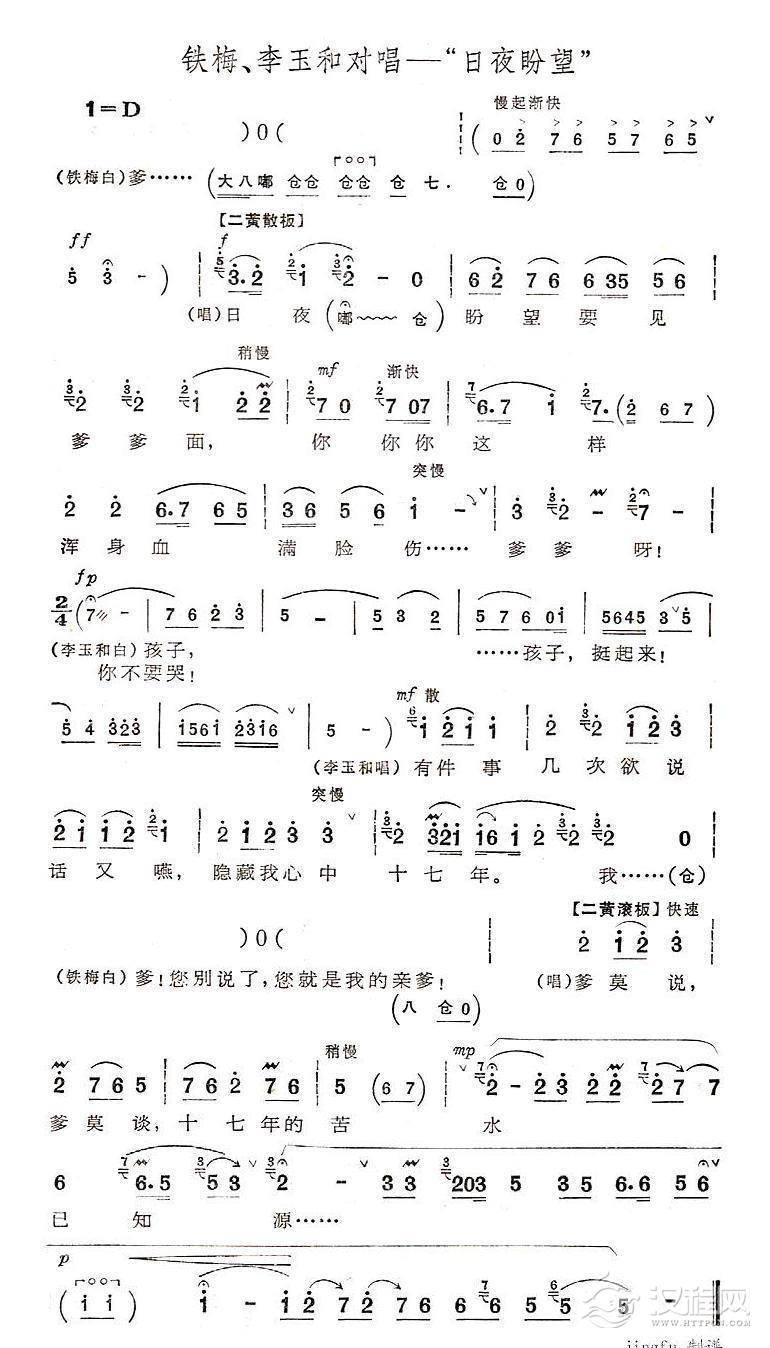 铁梅、李玉和对唱—“日夜盼望”
1=D
慢起渐快
)0(
(0 2 7 6 5 7 6 5
(铁梅白)爹…… (大八嘟 仓仓 仓仓 仓 七. 仓0)
【二黄散板】
ff f
5 3 -) 3.2 1 2 - 0 6 2 7 6 6 35 5 6
(唱)日 夜(嘟 仓) 盼 望 要 见
稍慢 mf 渐快
2 2 1 2 2 7 0 7 07 6.7 1 7.(2 6 7)
爹 爹 面， 你 你 你 这 样
突慢
2 2 6.7 6 5 3 6 5 6 1 - 3 2 - 7 -
浑 身 血 满 脸 伤…… 爹 爹 呀！
fp
2/4 (7 - 7 6 2 3 5 - 5 3 2 5 7 6 01 5645 3 5
(李玉和白)孩子， ……孩子，挺起来！
你不要哭！
mf 散
5 4 323 1561 2316 5 -) 1 2 1 1
(李玉和唱)有件 事 几 次欲 说
突慢
2 1 1 2 1 2 1 2 3 3 2 321 16 1 2 2 0
话 又 嚥，隐藏我心 中 十 七 年。 我……(仓)
【二黄滚板】快速
)0( 2 1 2 3
(铁梅白)爹！您别说了，您就是我的亲爹！ (唱)爹 莫 说，
(八 仓 0)
稍慢 mp
2 7 6 5 7 6 2 7 6 5 (6 7) 2 - 2 3 2 2 2 7 7
爹 莫 谈，十 七 年的 苦 水
6 6.5 5 3 2 - 3 3 203 5 3 5 6.6 5 6
已 知 源……
p
(1 1) 1 - 2 1 1 2 7 2 7 6 6 6 5 5 5 -
汉程网
HTTPCN.COM
jingfu 制谱